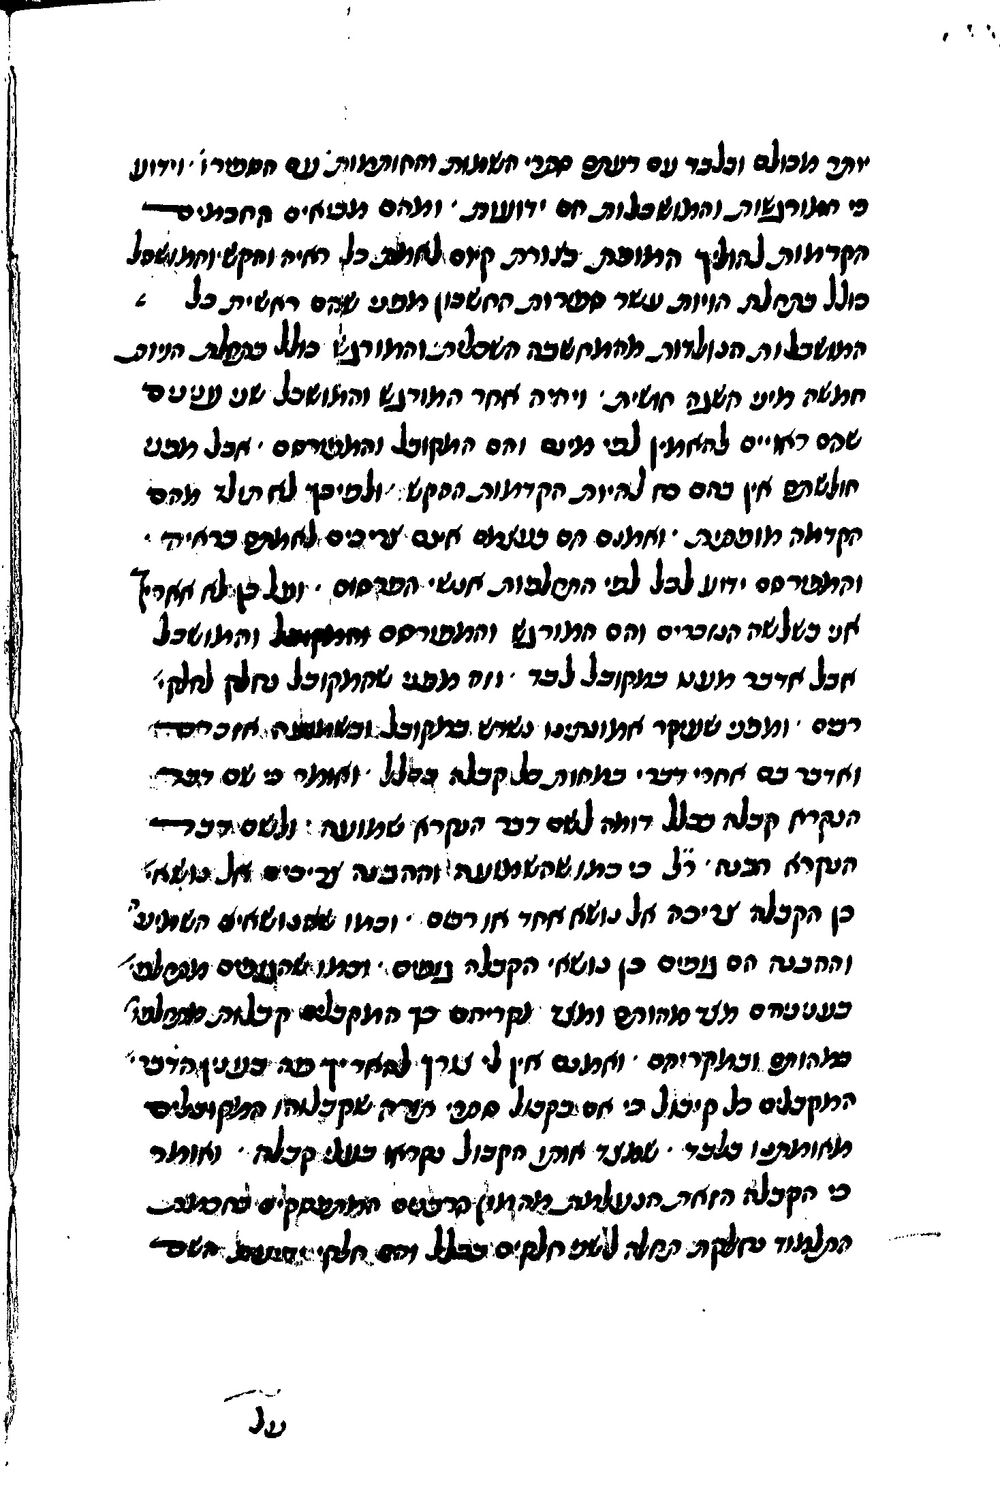 יותר מכולם ובלבד עם דעתם ספרי השמות והחותמות עם הספירו׳ · וידוע
כי המורגשות והמושכלות הם ידועות · ומהם מביאים החכמים
הקדמות להוליד המופת בצורת קיום לאמת כל ראיה והקש והמושכל
כולל בתחלת הויות עשר ספירות החשבון מפני שהם ראשית כל
המושכלות הנולדות מהמחשבה השכלית והמורגש כולל בתחלת הויות
חמשה מיני השגה חושית · ויהיה אחר המורגש והמושכל שני עניינים
שהם ראויים להאמין לפי מינם והם המקובל והמפורסם · אבל מפני
חולשתם אין בהם כח להיות הקדמות ההקש · ולפיכך לא תולד מהם
הקדמה מופתית · ואמנם הם בעצמם אינם צריכים לאמתם בראיה ·
והמפורסם ידוע לכל לפי התחלפות אנשי הפרסום · ועל כן לא אאריך
אני בשלשה הנזכרים והם המורגש והמפורסם והמושכל
אבל אדבר מעט במקובל לבד · וזה מפני שהמקובל נחלק לחלקי׳
רבים · ומפני שעיקר אמונתינו נשרש במקובל
ואדבר בם אחרי דברי במהות כל קבלה בכלל · ואומר כי שם דבר
הנקרא קבלה בכלל דומה לשם דבר הנקרא שמועה · ולשם דבר
הנקרא הבנה · ר״ל כי כמו שהשמועה וההבנה צריכים אל נושא
כן הקבלה צריכה אל נושא אחד או רבים · וכמו שהנושאים השמיע׳
וההבנה הם גופים כן נושאי הקבלה גופים · וכמו שהגופים מתחלפי׳
בענייניהם מצד מהותם ומצד מקריהם כך המקבלים קבלות מתחלפו׳
במהותם ובמקריהם · ואמנם אין לי צורך להאריך פה בענין הדבר׳
המקבלים כל קיבול כי אם בקבול ספרי תורה שקבלוהו המקובלים
מאומתינו בלבד · שמצד אותו הקבול נקראו בעלי קבלה · ואומר
כי הקבלה הזאת הנעלמת מהמון הרבנים המתעסקים בחכמת
התלמוד נחלקת תחלה לשני חלקים בכלל והם חלקי ידיעת השם
על